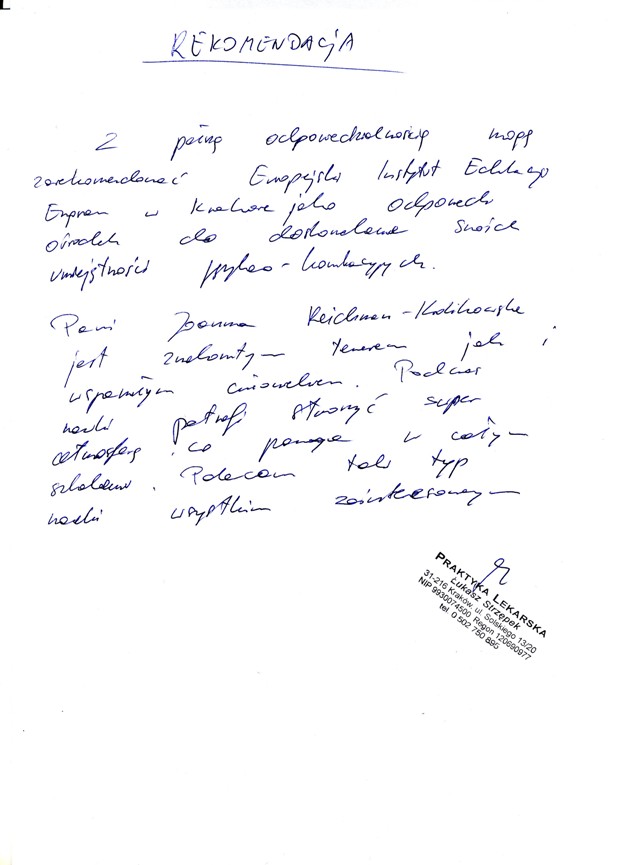 REKOMENDACJA
Z pełną odpowiedzialnością mogę
zarekomendować Europejski Instytut Edukacji
w Krakowie jako
ośrodek do doskonalenia swoich
umiejętności
Pani Joanna Reichman-Kulikowska
jest znakomitym trenerem jak i
wspaniałym człowiekiem. Podczas
nauki potrafi stworzyć super
atmosferę co pomaga w całym
szkoleniu. Polecam taki typ
nauki wszystkim zainteresowanym
PRAKTYKA LEKARSKA
Łukasz Strzępek
31-216 Kraków, ul. Solskiego 13/20
NIP 9930074500 Regon 120690977
tel. 0 502 750 895